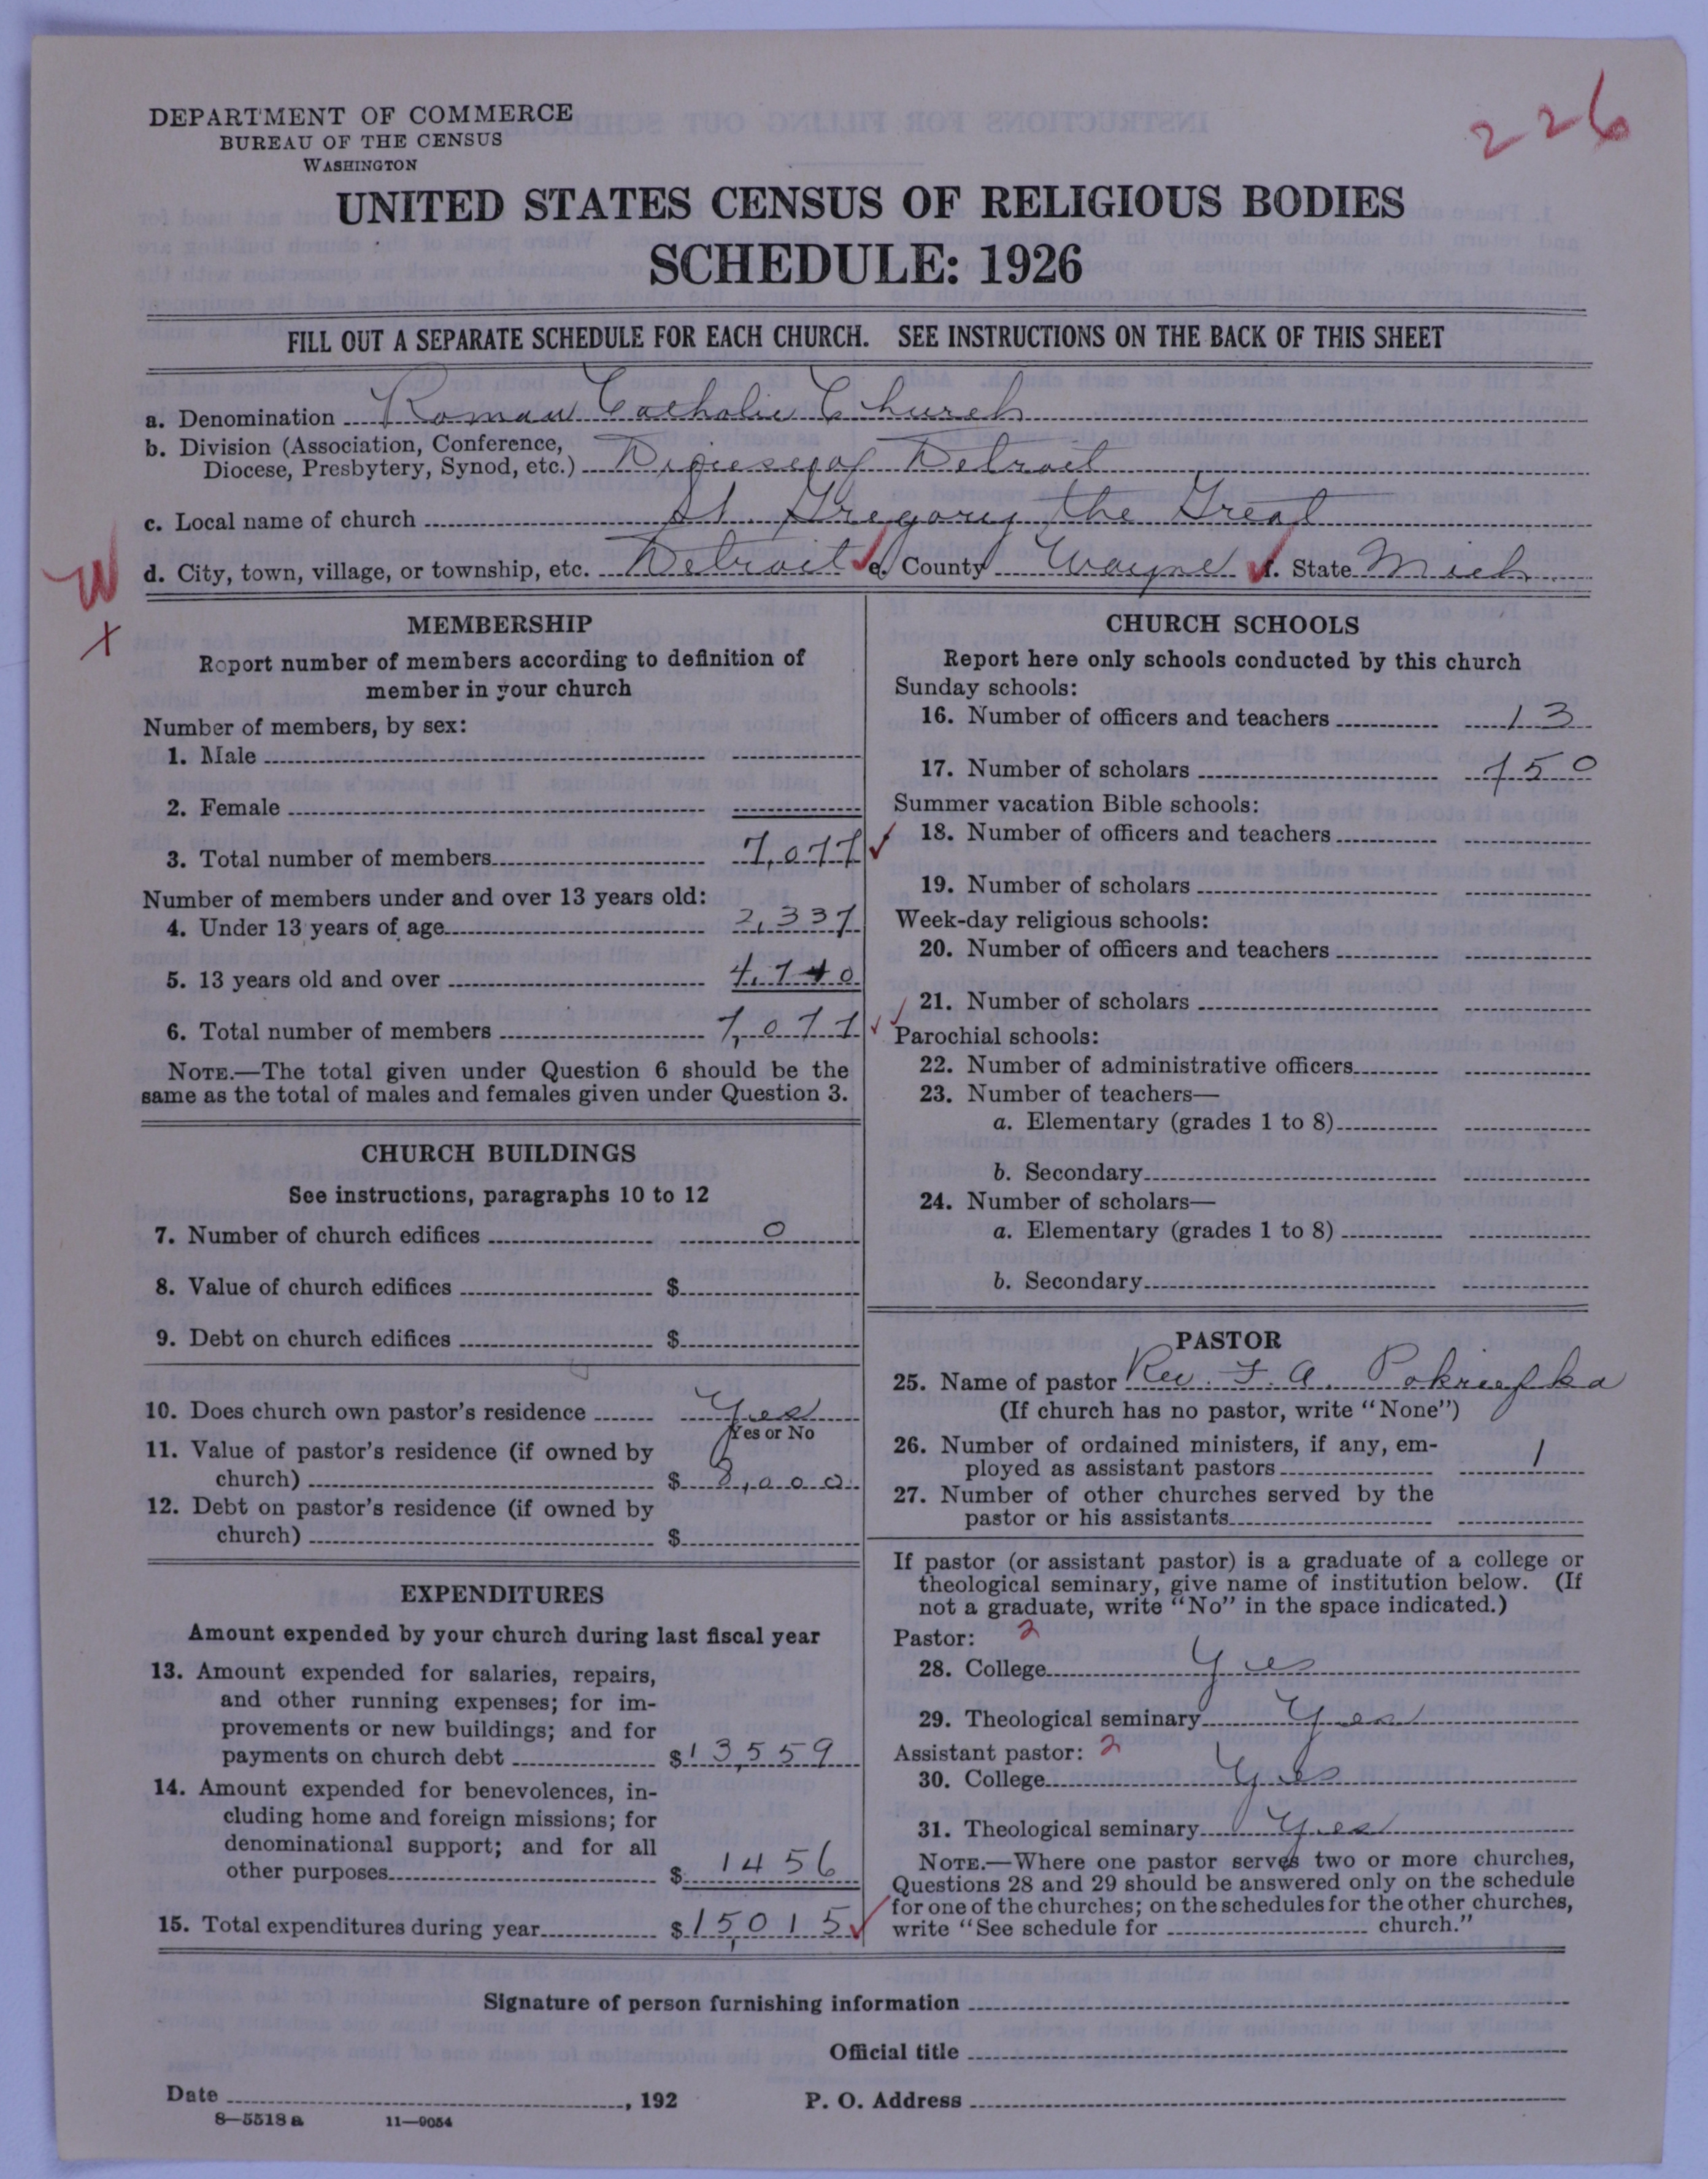 226
DEPARTMENT OF COMMERCE
BUREAU OF THE CENSUS
WASHINGTON
UNITED STATES CENSUS OF RELIGIOUS BODIES
SCHEDULE: 1926
FILL OUT A SEPARATE SCHEDULE FOR EACH CHURCH. SEE INSTRUCTIONS ON THE BACK OF THIS SHEET
a. Denomination Roman Catholic Church
b. Division (Association, Conference,
Diocese, Presbytery, Synod, etc.) Diocese of Detroit
c. Local name of church St. Gregory the Great
W d. City, town, village, or township, etc. Detroit e. County Wayne f. State Mich.
X
MEMBERSHIP
Report number of members according to definition of
member in your church
Number of members, by sex:
1. Male
2. Female
3. Total number of members 7,077
Number of members under and over 13 years old:
4. Under 13 years of age 2,337
5. 13 years old and over 4,740
6. Total number of members 7,077
NOTE.—The total given under Question 6 should be the
same as the total of males and females given under Question 3.
CHURCH BUILDINGS
See instructions, paragraphs 10 to 12
7. Number of church edifices 0
8. Value of church edifices $
9. Debt on church edifices $
10. Does church own pastor's residence Yes
Yes or No
11. Value of pastor's residence (if owned by
church) $ 8,000
12. Debt on pastor's residence (if owned by
church) $
EXPENDITURES
Amount expended by your church during last fiscal year
13. Amount expended for salaries, repairs,
and other running expenses; for im-
provements or new buildings; and for
payments on church debt $ 13,559
14. Amount expended for benevolences, in-
cluding home and foreign missions; for
denominational support; and for all
other purposes $ 1456
15. Total expenditures during year $ 15,015
CHURCH SCHOOLS
Report here only schools conducted by this church
Sunday schools:
16. Number of officers and teachers 13
17. Number of scholars 750
Summer vacation Bible schools:
18. Number of officers and teachers
19. Number of scholars
Week-day religious schools:
20. Number of officers and teachers
21. Number of scholars
Parochial schools:
22. Number of administrative officers
23. Number of teachers—
a. Elementary (grades 1 to 8)
b. Secondary
24. Number of scholars—
a. Elementary (grades 1 to 8)
b. Secondary
PASTOR
25. Name of pastor Rev. F. A. Pokriefka
(If church has no pastor, write "None")
26. Number of ordained ministers, if any, em-
ployed as assistant pastors 1
27. Number of other churches served by the
pastor or his assistants
If pastor (or assistant pastor) is a graduate of a college or
theological seminary, give name of institution below. (If
not a graduate, write "No" in the space indicated.)
Pastor: 2
28. College Yes
29. Theological seminary Yes
Assistant pastor: 2
30. College Yes
31. Theological seminary Yes
NOTE.—Where one pastor serves two or more churches,
Questions 28 and 29 should be answered only on the schedule
for one of the churches; on the schedules for the other churches,
write "See schedule for church."
Signature of person furnishing information
Official title
Date , 192 P. O. Address
8—5518 a 11—9054